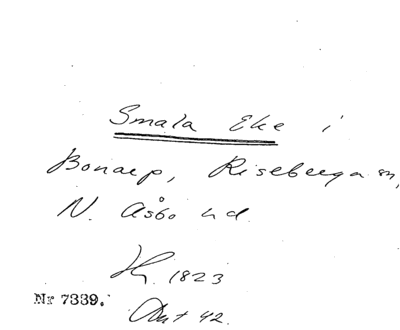 Smala Eke i
Bonarp, Riseberga sn,
N. Åsbo hd.
1823
Nr 7339.
Akt 42.